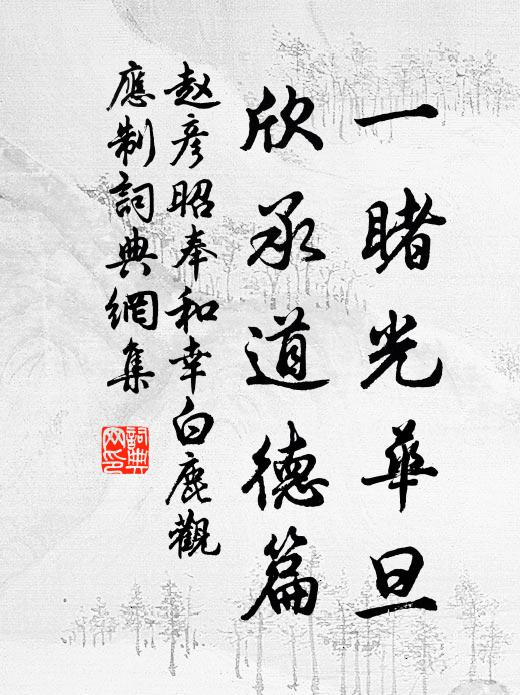 一睹光華旦
欣承道德篇
赵彦昭奉和幸白鹿觀
應制詞典網集
詞典網印